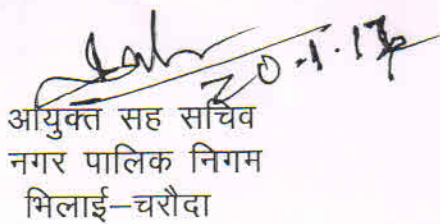 20.1.17
आयुक्त सह सचिव
नगर पालिक निगम
भिलाई–चरौदा